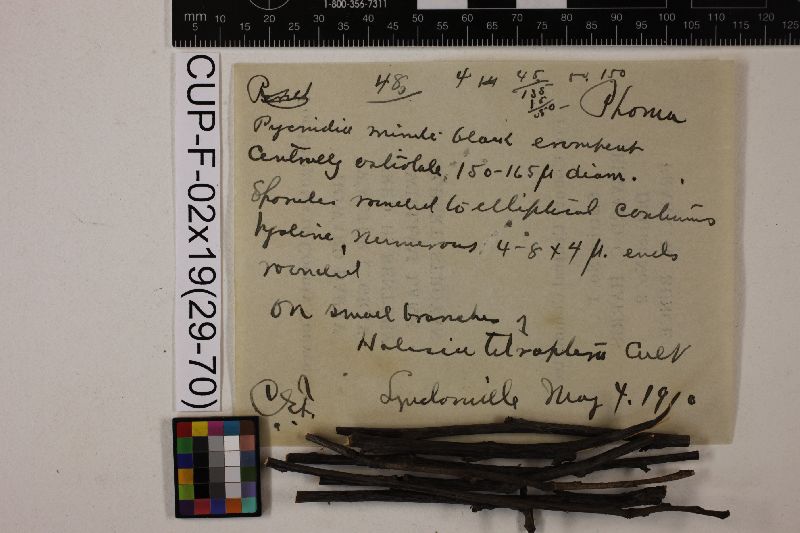 1-800-356-7311
mm 5 10 15 20 25 30 35 40 45 50 55 60 65 70 75 80 85 90 95 100 105 110 115 120 125
CUP-F-02x19(29-70)
48 4 45 54 150
135
Phoma
Pycnidia minute black erumpent
Centrally ostiolate, 150-165µ diam.
Sporules rounded to elliptical continuous
hyaline, numerous, 4-8 x 4 µ. ends
rounded
On small branches of
Halesia tetraptera Cult
Lyndonville May 4. 1910